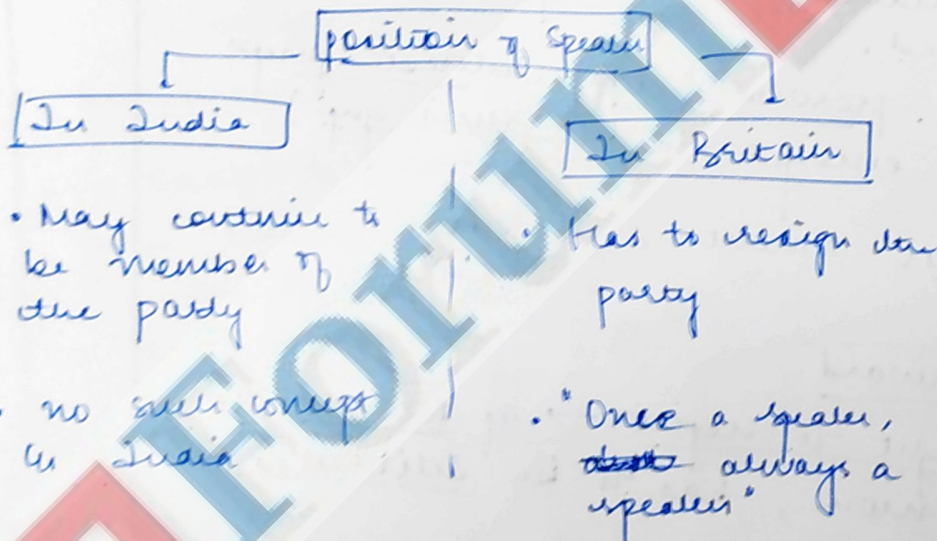 Position of Speaker
In India
• May continue to
be member of
the party
• no such concept
in India
In Britain
• Has to resign the
party
• "Once a speaker,
always a
speaker"
Forum